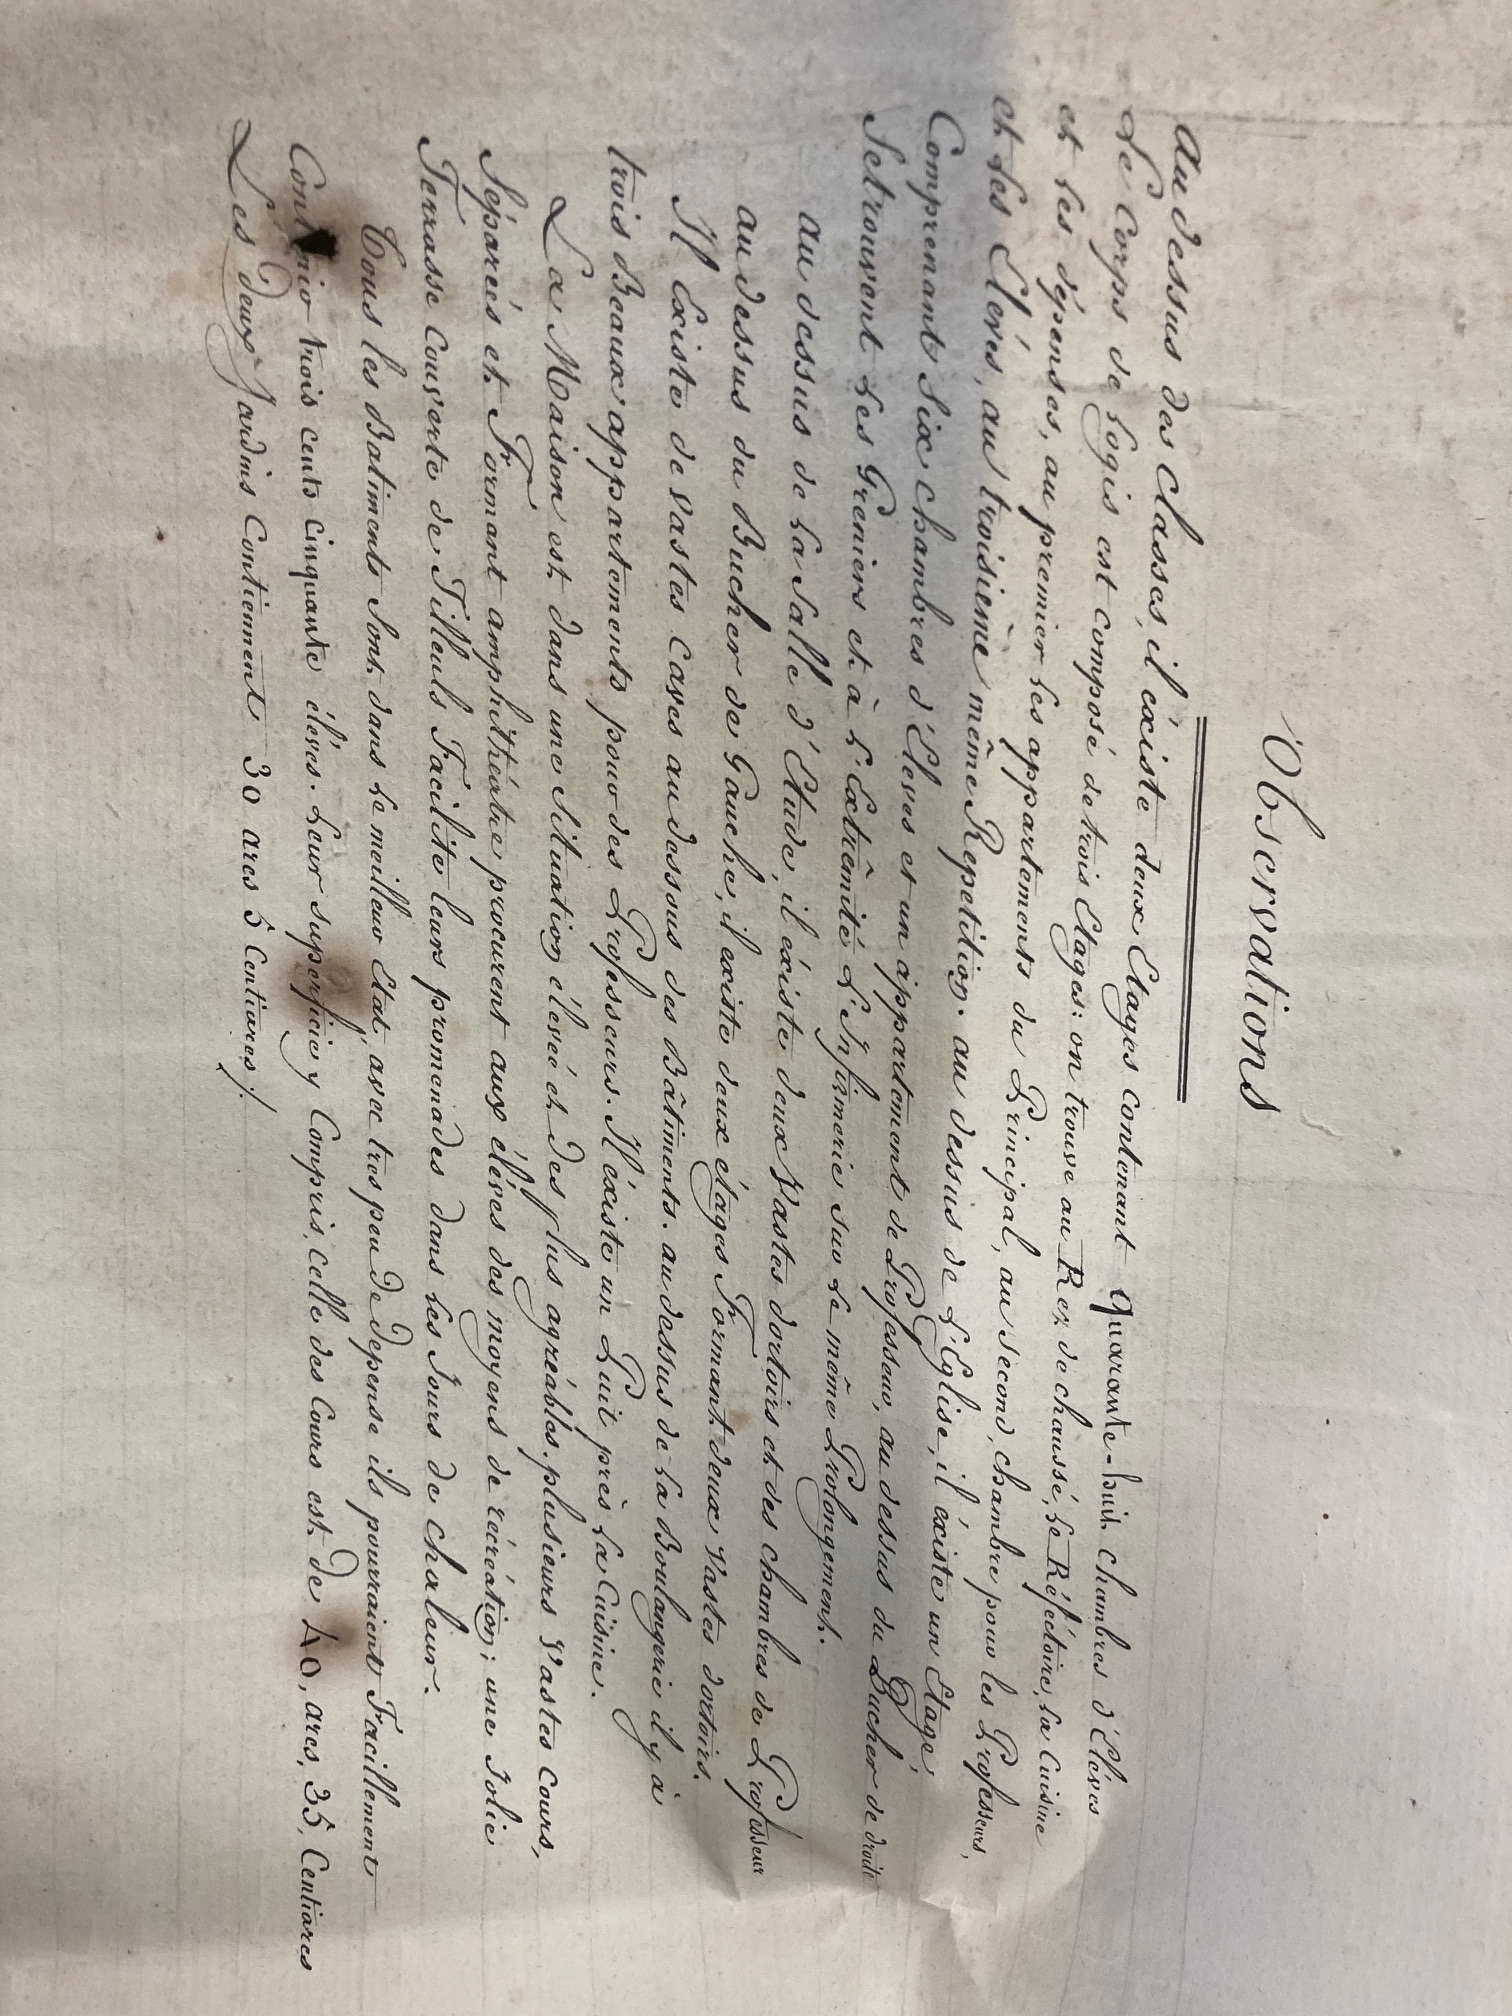 Observations
Au dessus des Classes, il éxiste deux Etages contenant Quarante-huit chambres d'Elèves
Le Corps de Logis est composé de trois Etages: on trouve au Rez de chaussé, Le Réfectoire, La Cuisine
et Les dépenses, au premier Les appartements du Principal, au second, chambre pour les Professeurs,
et Les Elevés, au troisieme même Repetition. au dessus de L'Eglise, il éxiste un Etage,
Comprenant Six chambres d'Eleves et un appartement de Professeur, au dessus du Bucher de droite
Se trouvent Les Greniers et à L'Extrêmité L'Infirmerie sur Le même Prolongement.
au dessus de La Salle d'Etude, il éxiste deux Vastes dortoirs et des chambres de Professeur
au dessus du Bucher de Gauche, il éxiste deux étages Formant deux Vastes dortoirs.
Il Existe de Vastes Caves au dessous des Bâtiments. au dessus de La Boulangerie il y a
trois Beaux appartements pour des Professeurs. Il éxiste un Puit près La Cuisine.
La Maison est dans une Situation élevéé et des plus agréables. plusieurs Vastes Cours,
Séparéés et Formant amphithéatre procurent aux élèves des moyens de récréation; une Jolie
Terrasse Couverte de Tilleuls Facilite leurs promenades dans Les Jours de chaleur.
Tous les Batiments Sont dans Le meilleur Etat, avec tres peu De Depense ils pourraient Facillement
trois cents cinquante élèves. Leur superficie y Compris, Celle des Cours est de 40, ares, 35, Centiares
Les deux Jardins Contiennent 30 ares 5 Centiares /.